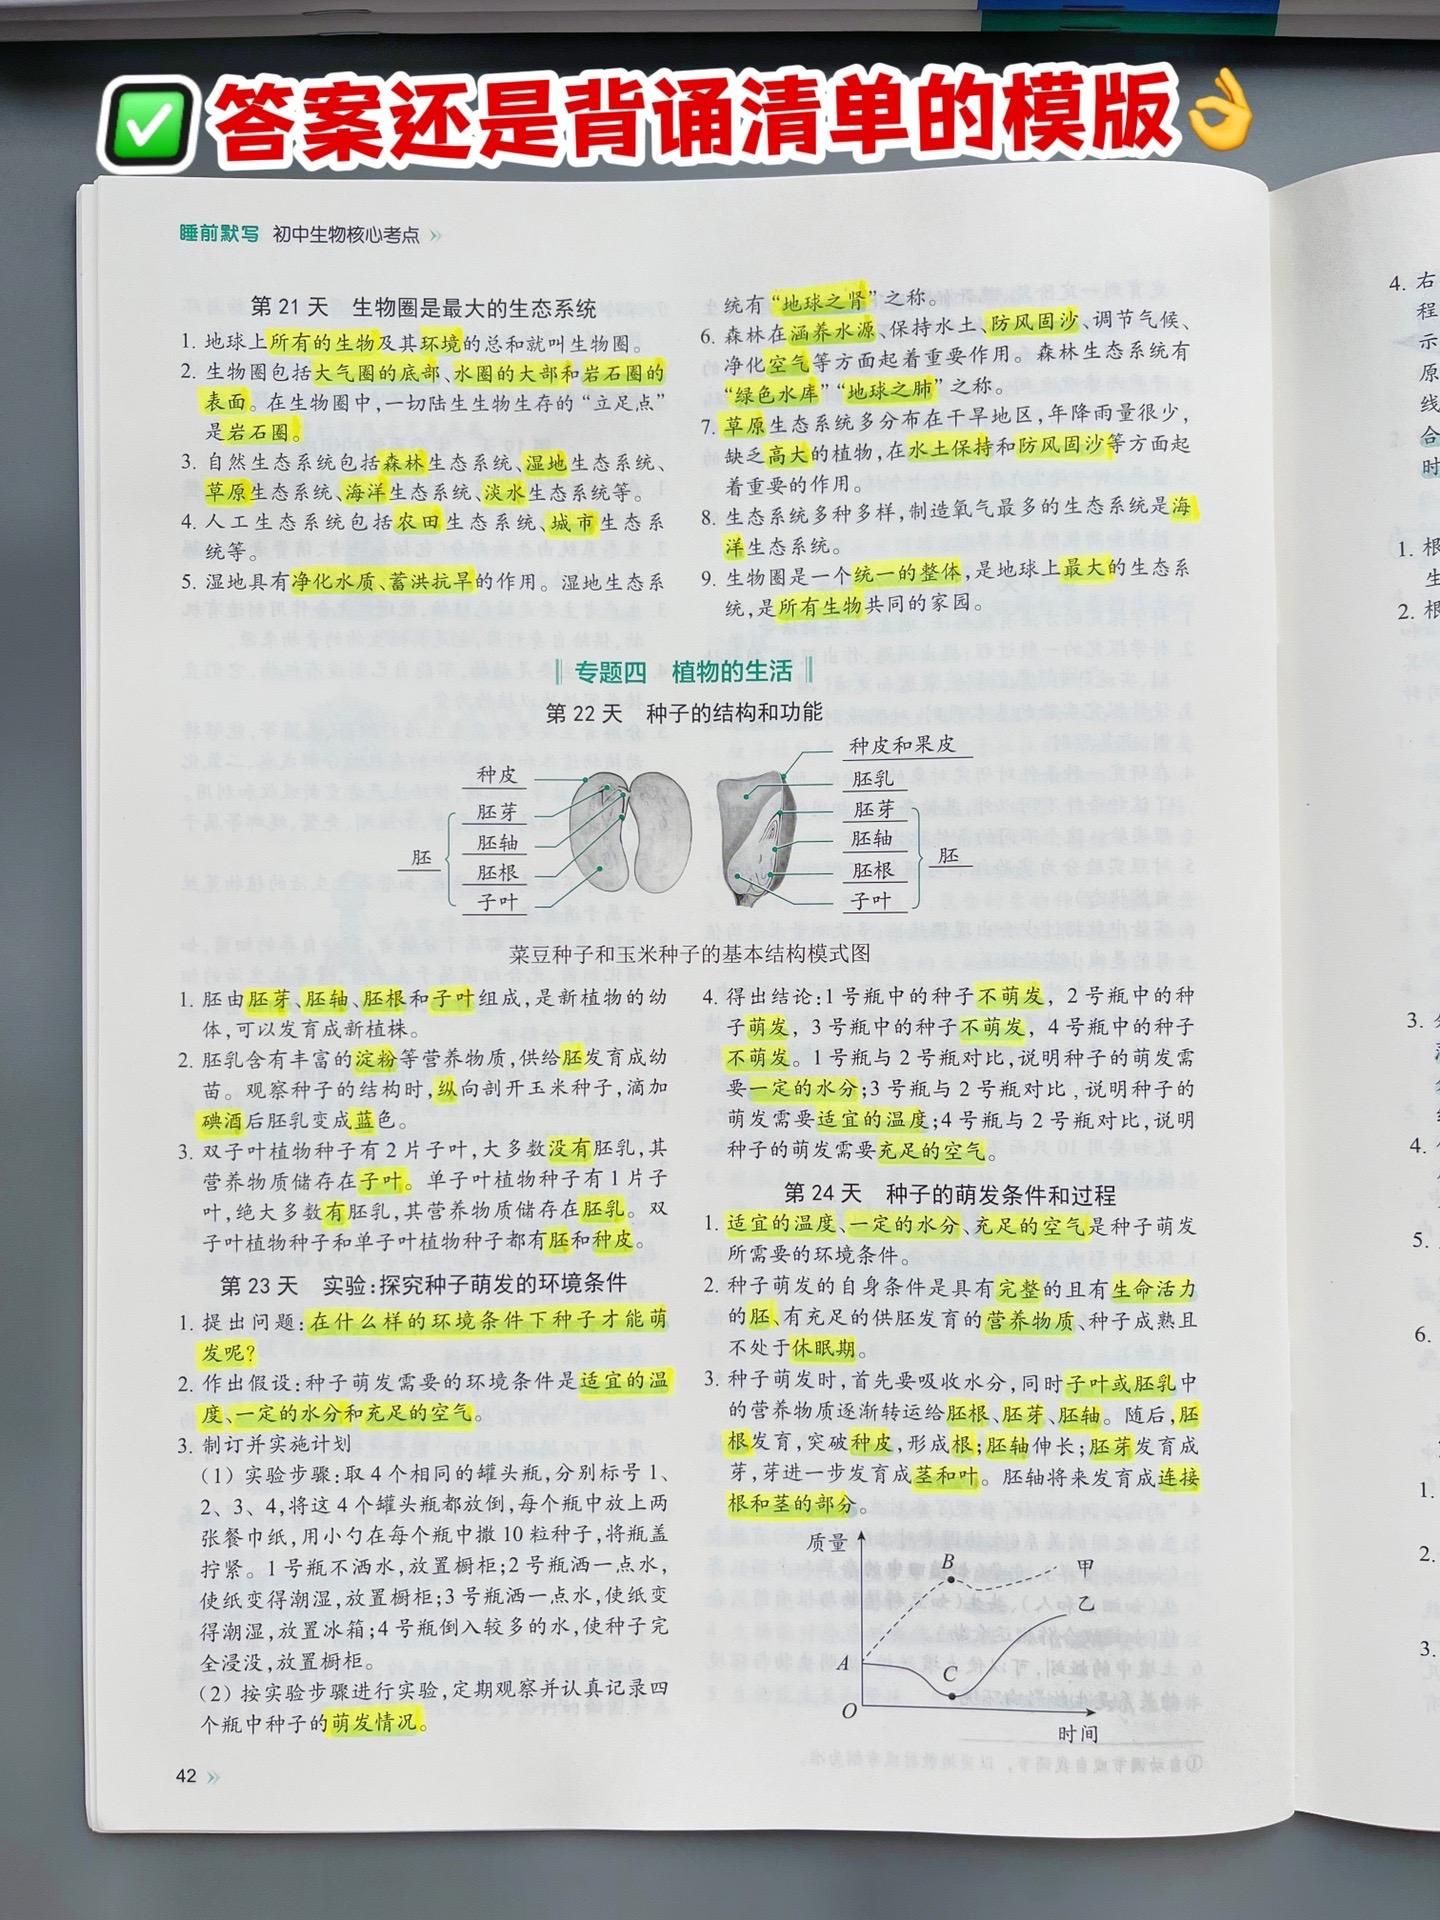 答案还是背诵清单的模版
睡前默写 初中生物核心考点
第21天 生物圈是最大的生态系统
1. 地球上所有的生物及其环境的总和就叫生物圈。
2. 生物圈包括大气圈的底部、水圈的大部和岩石圈的
表面。在生物圈中,一切陆生生物生存的“立足点”
是岩石圈。
3. 自然生态系统包括森林生态系统、湿地生态系统、
草原生态系统、海洋生态系统、淡水生态系统等。
4. 人工生态系统包括农田生态系统、城市生态系
统等。
5. 湿地具有净化水质、蓄洪抗旱的作用。湿地生态系
统有“地球之肾”之称。
6. 森林在涵养水源、保持水土、防风固沙、调节气候、
净化空气等方面起着重要作用。森林生态系统有
“绿色水库”“地球之肺”之称。
7. 草原生态系统多分布在干旱地区,年降雨量很少,
缺乏高大的植物,在水土保持和防风固沙等方面起
着重要的作用。
8. 生态系统多种多样,制造氧气最多的生态系统是海
洋生态系统。
9. 生物圈是一个统一的整体,是地球上最大的生态系
统,是所有生物共同的家园。
专题四 植物的生活
第22天 种子的结构和功能
种皮
胚芽
胚轴
胚根
子叶
胚
种皮和果皮
胚乳
胚芽
胚轴
胚根
子叶
胚
菜豆种子和玉米种子的基本结构模式图
1. 胚由胚芽、胚轴、胚根和子叶组成,是新植物的幼
体,可以发育成新植株。
2. 胚乳含有丰富的淀粉等营养物质,供给胚发育成幼
苗。观察种子的结构时,纵向剖开玉米种子,滴加
碘酒后胚乳变成蓝色。
3. 双子叶植物种子有2片子叶,大多数没有胚乳,其
营养物质储存在子叶。单子叶植物种子有1片子
叶,绝大多数有胚乳,其营养物质储存在胚乳。双
子叶植物种子和单子叶植物种子都有胚和种皮。
第23天 实验:探究种子萌发的环境条件
1. 提出问题:在什么样的环境条件下种子才能萌
发呢?
2. 作出假设:种子萌发需要的环境条件是适宜的温
度、一定的水分和充足的空气。
3. 制订并实施计划
(1)实验步骤:取4个相同的罐头瓶,分别标号1、
2、3、4,将这4个罐头瓶都放倒,每个瓶中放上两
张餐巾纸,用小勺在每个瓶中撒10粒种子,将瓶盖
拧紧。1号瓶不洒水,放置橱柜;2号瓶洒一点水,
使纸变得潮湿,放置橱柜;3号瓶洒一点水,使纸变
得潮湿,放置冰箱;4号瓶倒入较多的水,使种子完
全浸没,放置橱柜。
(2)按实验步骤进行实验,定期观察并认真记录四
个瓶中种子的萌发情况。
4. 得出结论:1号瓶中的种子不萌发,2号瓶中的种
子萌发,3号瓶中的种子不萌发,4号瓶中的种子
不萌发。1号瓶与2号瓶对比,说明种子的萌发需
要一定的水分;3号瓶与2号瓶对比,说明种子的
萌发需要适宜的温度;4号瓶与2号瓶对比,说明
种子的萌发需要充足的空气。
第24天 种子的萌发条件和过程
1. 适宜的温度、一定的水分、充足的空气是种子萌发
所需要的环境条件。
2. 种子萌发的自身条件是具有完整的且有生命活力
的胚、有充足的供胚发育的营养物质、种子成熟且
不处于休眠期。
3. 种子萌发时,首先要吸收水分,同时子叶或胚乳中
的营养物质逐渐转运给胚根、胚芽、胚轴。随后,胚
根发育,突破种皮,形成根;胚轴伸长;胚芽发育成
芽,芽进一步发育成茎和叶。胚轴将来发育成连接
根和茎的部分。
质量
B
甲
乙
A
C
O
时间
42
4. 右
程
示
原
线
合
时
1. 根
生
2. 根
3.
4.
5.
6.
1.
2.
3.